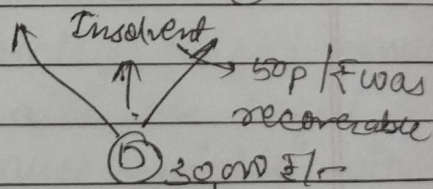 Insolvent
50p/₹ was
recoverable
D 30000 ₹/-